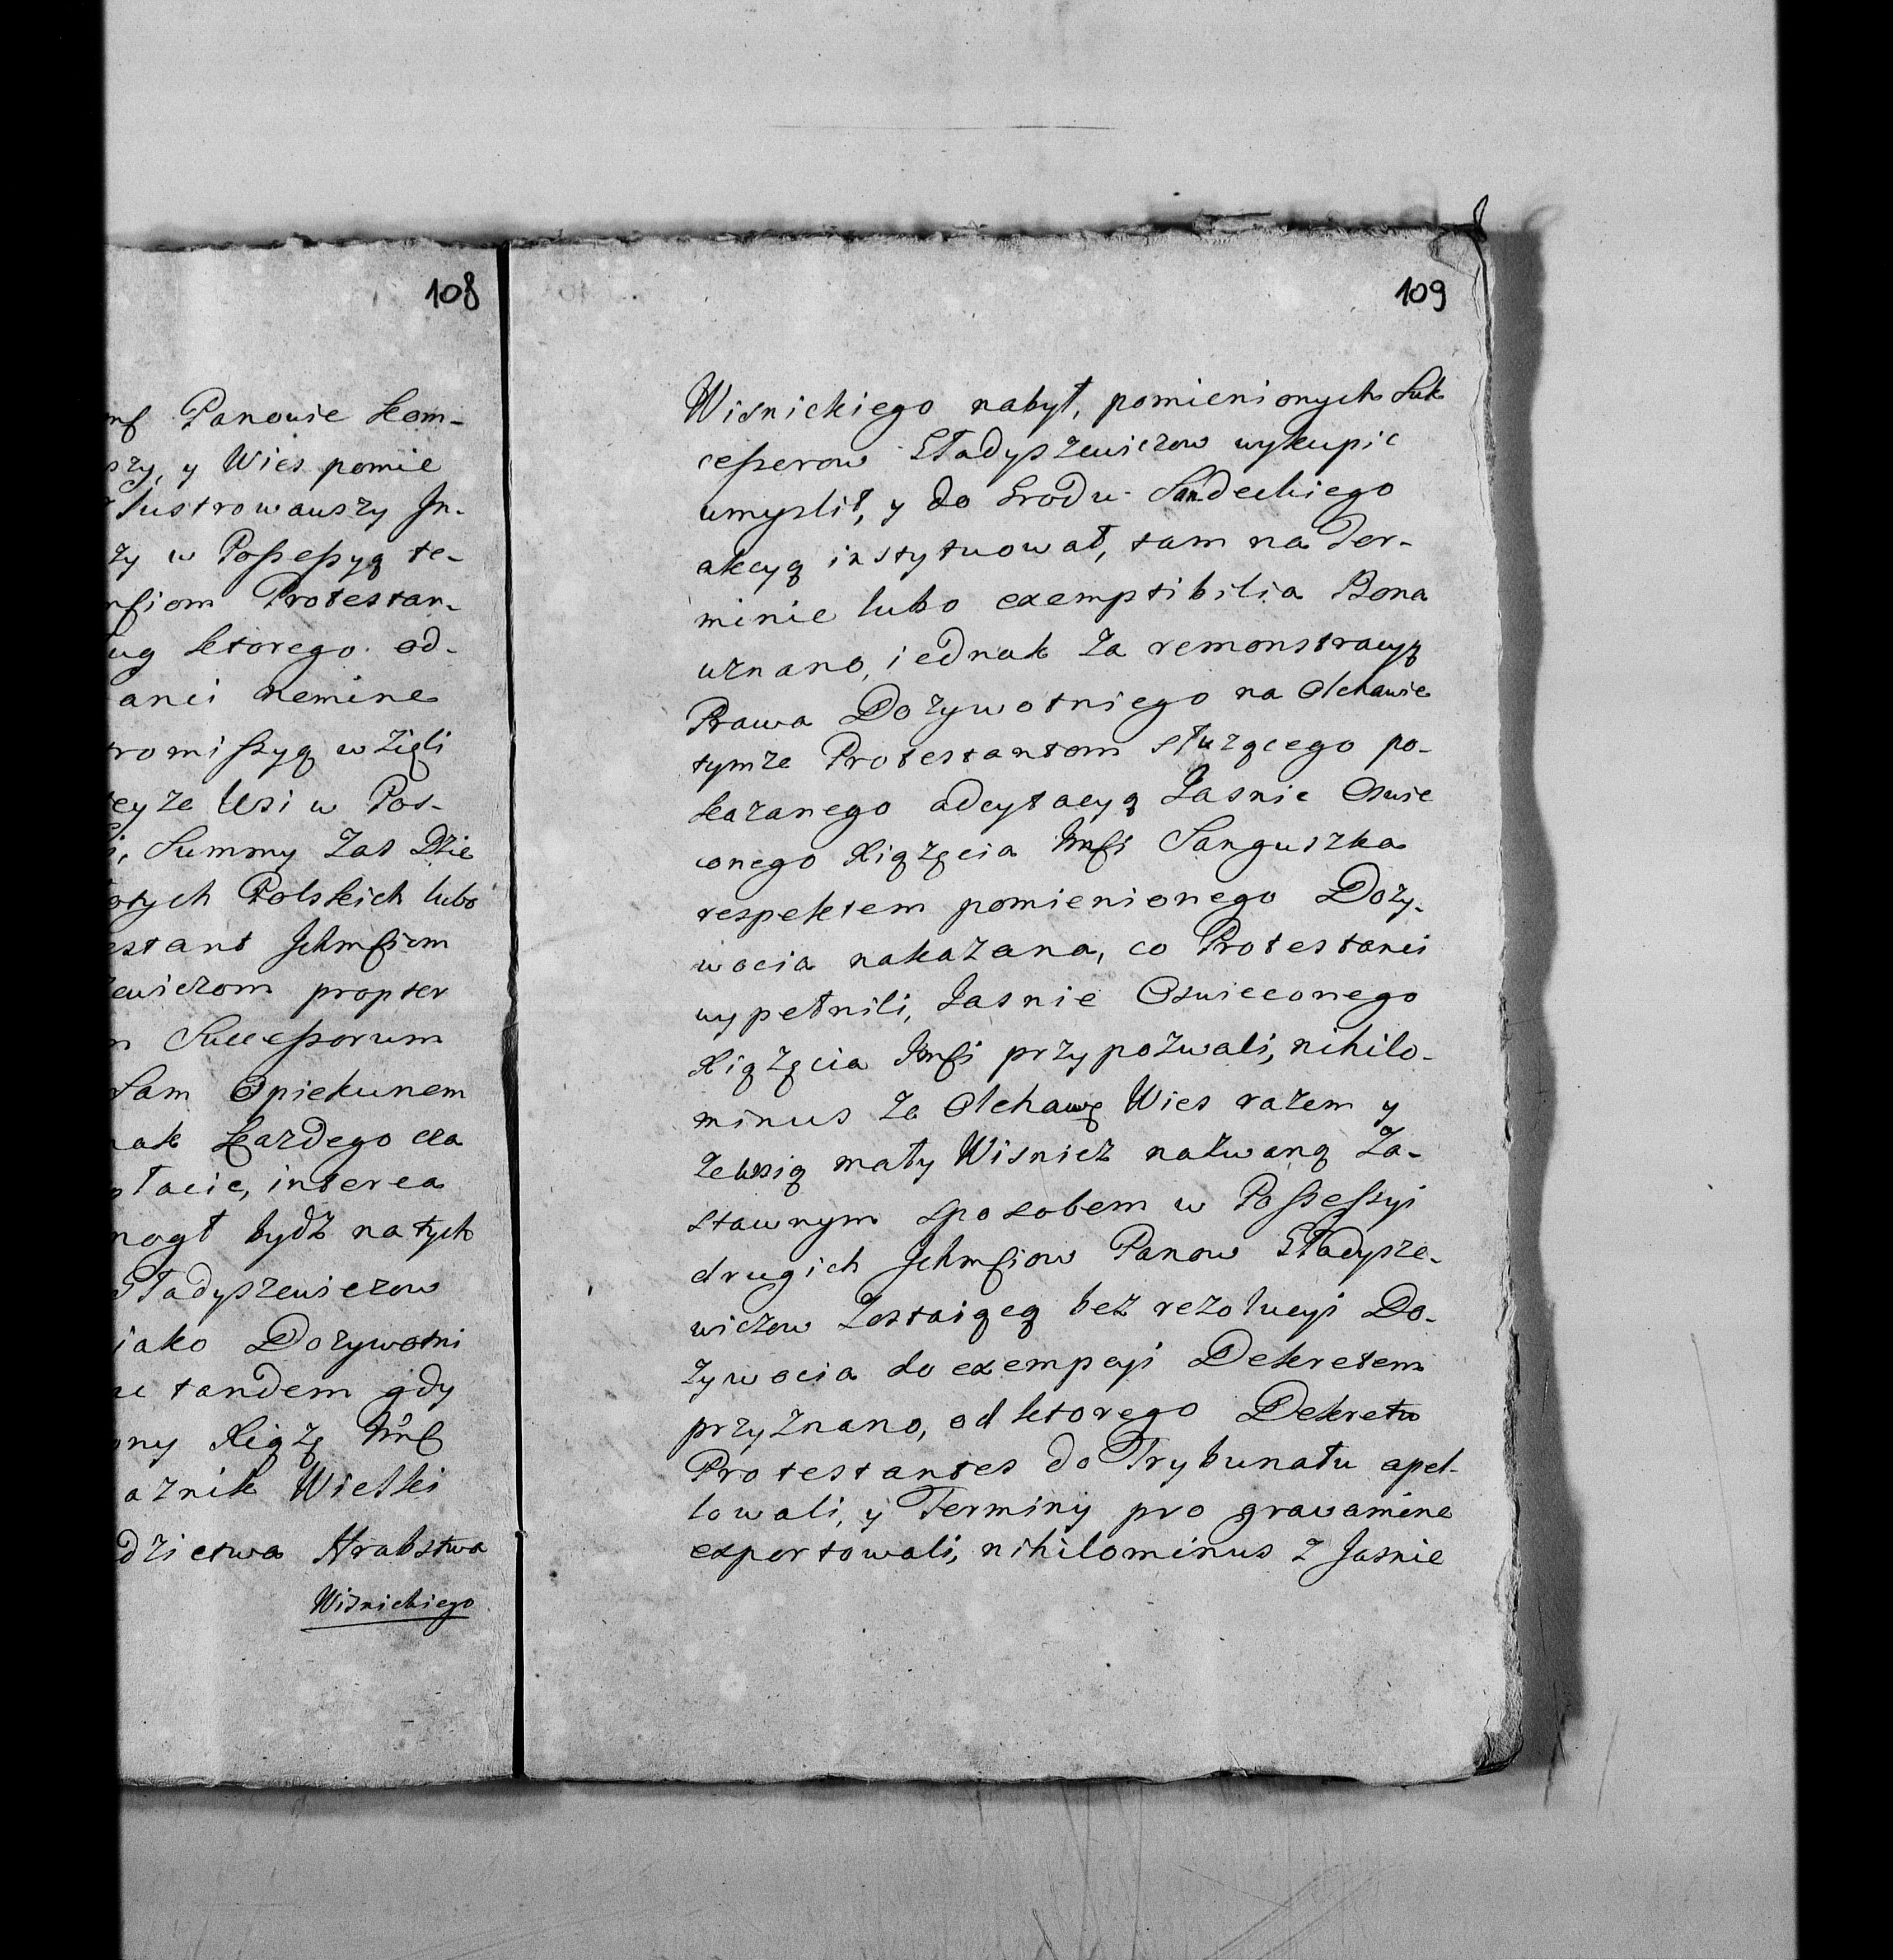 108
Panowie kom-
szy, y Wies pomie
lustrowawszy In-
zy w Possessyą te-
Protestan-
ug ktorego od-
anci nemine
romissyą wzięli
teyze Wsi w Pos-
Summy zas Dzie
otych Polskich lubo
estant Jchmściom
ewiczom propter
Successorum
Sam Opiekunem
nak kazdego cza
płacic, interea
mogł bydz na tych
Gładyszewiczow
iako Dozywotni
tandem gdy
ony Xiążę Jmść
aznik Wielki
dzictwa Hrabstwa
Wisnickiego
109
Wisnickiego nabył, pomienionych Suk
cessorow Gładyszewiczow wykupic
umyslił, y do Grodu Sandeckiego
akcyą instytuował, tam na Ter-
minie lubo exemptibilia Bona
uznano, iednak za remonstracyą
Prawa Dozywotniego na Olchawie
tymze Protestantom słuzącego po-
kazanego adcytacyą Jasnie Oswie
conego Xiążęcia Jmści Sanguszka
respektem pomienionego Dozy-
wocia nakazana, co Protestanci
wypełnili, Jasnie Oswieconego
Xiążęcia Jmści przypozwali, nihilo-
minus za Olchawę Wies razem y
ze wsią mały Wisnicz nazwaną Za-
stawnym sposobem w Possessyi
drugich Jchmściow Panow Gładysze-
wiczow Zostaiącą bez rezolucyi Do-
zywocia do exempcyi Dekretem
przyznano, od ktorego Dekretu
Protestantes do Trybunału apel-
lowali, y Terminy pro gravamine
exportowali, nihilominus z Jasnie